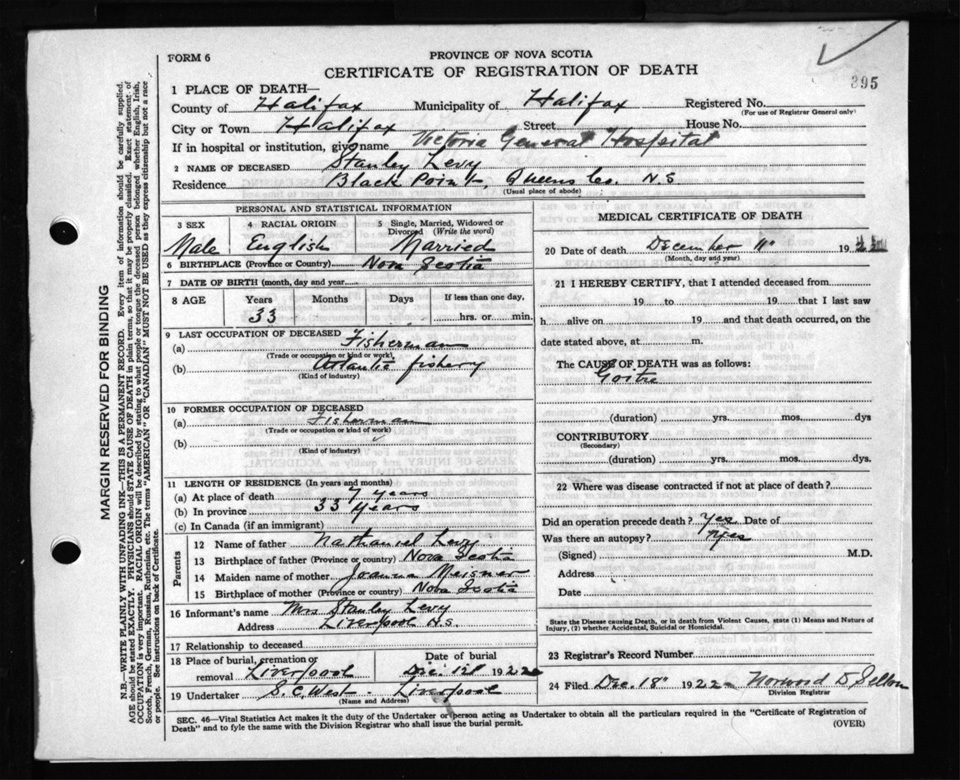 FORM 6
PROVINCE OF NOVA SCOTIA
CERTIFICATE OF REGISTRATION OF DEATH
395
1 PLACE OF DEATH—
County of Halifax Municipality of Halifax Registered No.
(For use of Registrar General only)
City or Town Halifax Street House No.
If in hospital or institution, give name Victoria General Hospital
2 NAME OF DECEASED Stanley Levy
Residence Black Point, Queens Co. N.S
(Usual place of abode)
PERSONAL AND STATISTICAL INFORMATION
3 SEX 4 RACIAL ORIGIN 5 Single, Married, Widowed or Divorced (Write the word)
Male English Married
6 BIRTHPLACE (Province or Country) Nova Scotia
7 DATE OF BIRTH (month, day and year)
8 AGE Years Months Days If less than one day,
33 hrs. or min.
9 LAST OCCUPATION OF DECEASED
(a) Fisherman
(Trade or occupation or kind or work)
(b) Atlantic fishery
(Kind of industry)
10 FORMER OCCUPATION OF DECEASED
(a) Fisherman
(Trade or occupation or kind of work)
(b)
(Kind of industry)
11 LENGTH OF RESIDENCE (In years and months)
(a) At place of death 7 years
(b) In province 33 years
(c) In Canada (if an immigrant)
Parents
12 Name of father Nathaniel Levy
13 Birthplace of father (Province or country) Nova Scotia
14 Maiden name of mother Joanna Meisner
15 Birthplace of mother (Province or country) Nova Scotia
16 Informant's name Mrs Stanley Levy
Address Liverpool N.S
17 Relationship to deceased
18 Place of burial, cremation or removal Liverpool Date of burial Dec. 12 1922
19 Undertaker S. C. West. Liverpool
(Name and Address)
MEDICAL CERTIFICATE OF DEATH
20 Date of death December 11 192
(Month, day and year)
21 I HEREBY CERTIFY, that I attended deceased from
19 to 19 that I last saw
h alive on 19 and that death occurred, on
date stated above, at m.
The CAUSE OF DEATH was as follows:
Goitre
(duration) yrs. mos. dys
CONTRIBUTORY
(Secondary)
(duration) yrs. mos. dys.
22 Where was disease contracted if not at place of death?
Did an operation precede death? Yes Date of
Was there an autopsy? Yes
(Signed) M.D.
Address
Date
State the Disease causing Death, or in death from Violent Causes, state (1) Means and Nature of Injury, (2) whether Accidental, Suicidal or Homicidal.
23 Registrar's Record Number
24 Filed Dec. 18 1922 Norwood D.
Division Registrar
SEC. 46—Vital Statistics Act makes it the duty of the Undertaker or person acting as Undertaker to obtain all the particulars required in the "Certificate of Registration of
Death" and to fyle the same with the Division Registrar who shall issue the burial permit.
(OVER)
MARGIN RESERVED FOR BINDING
N.B.—WRITE PLAINLY WITH UNFADING INK—THIS IS A PERMANENT RECORD. Every item of information should be carefully supplied.
AGE should be stated EXACTLY. PHYSICIANS should STATE CAUSE OF DEATH in plain terms, so that it may be properly classified. Exact statement of
OCCUPATION is very important. RACIAL ORIGIN will be described by stating to what people or tongue the deceased person belonged whether English, Irish,
Scotch, French, German, Russian, Ruthenian, etc. The terms "AMERICAN" OR "CANADIAN" MUST NOT BE USED as they express citizenship but not a race
or people. See instructions on back of Certificate.